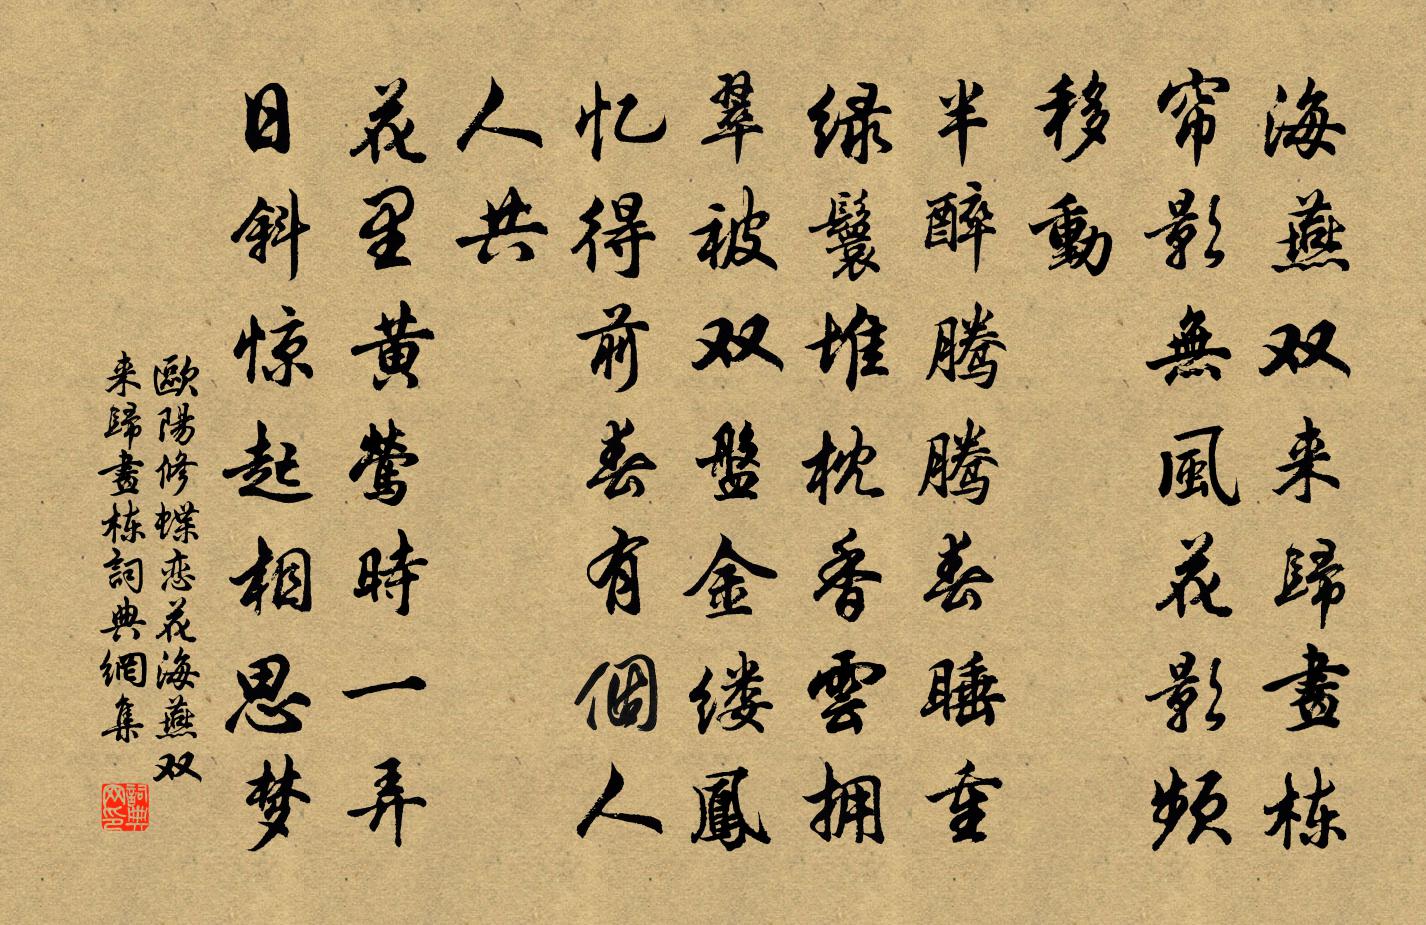 海燕双来歸畫栋
帘影無風花影頻
移動
半醉腾腾春睡重
绿鬟堆枕香雲拥
翠被双盤金缕鳳
忆得前春有個人
人共
花里黄莺時一弄
日斜惊起相思梦
歐陽修蝶恋花海燕双
来歸畫栋詞典網集
詞典网印